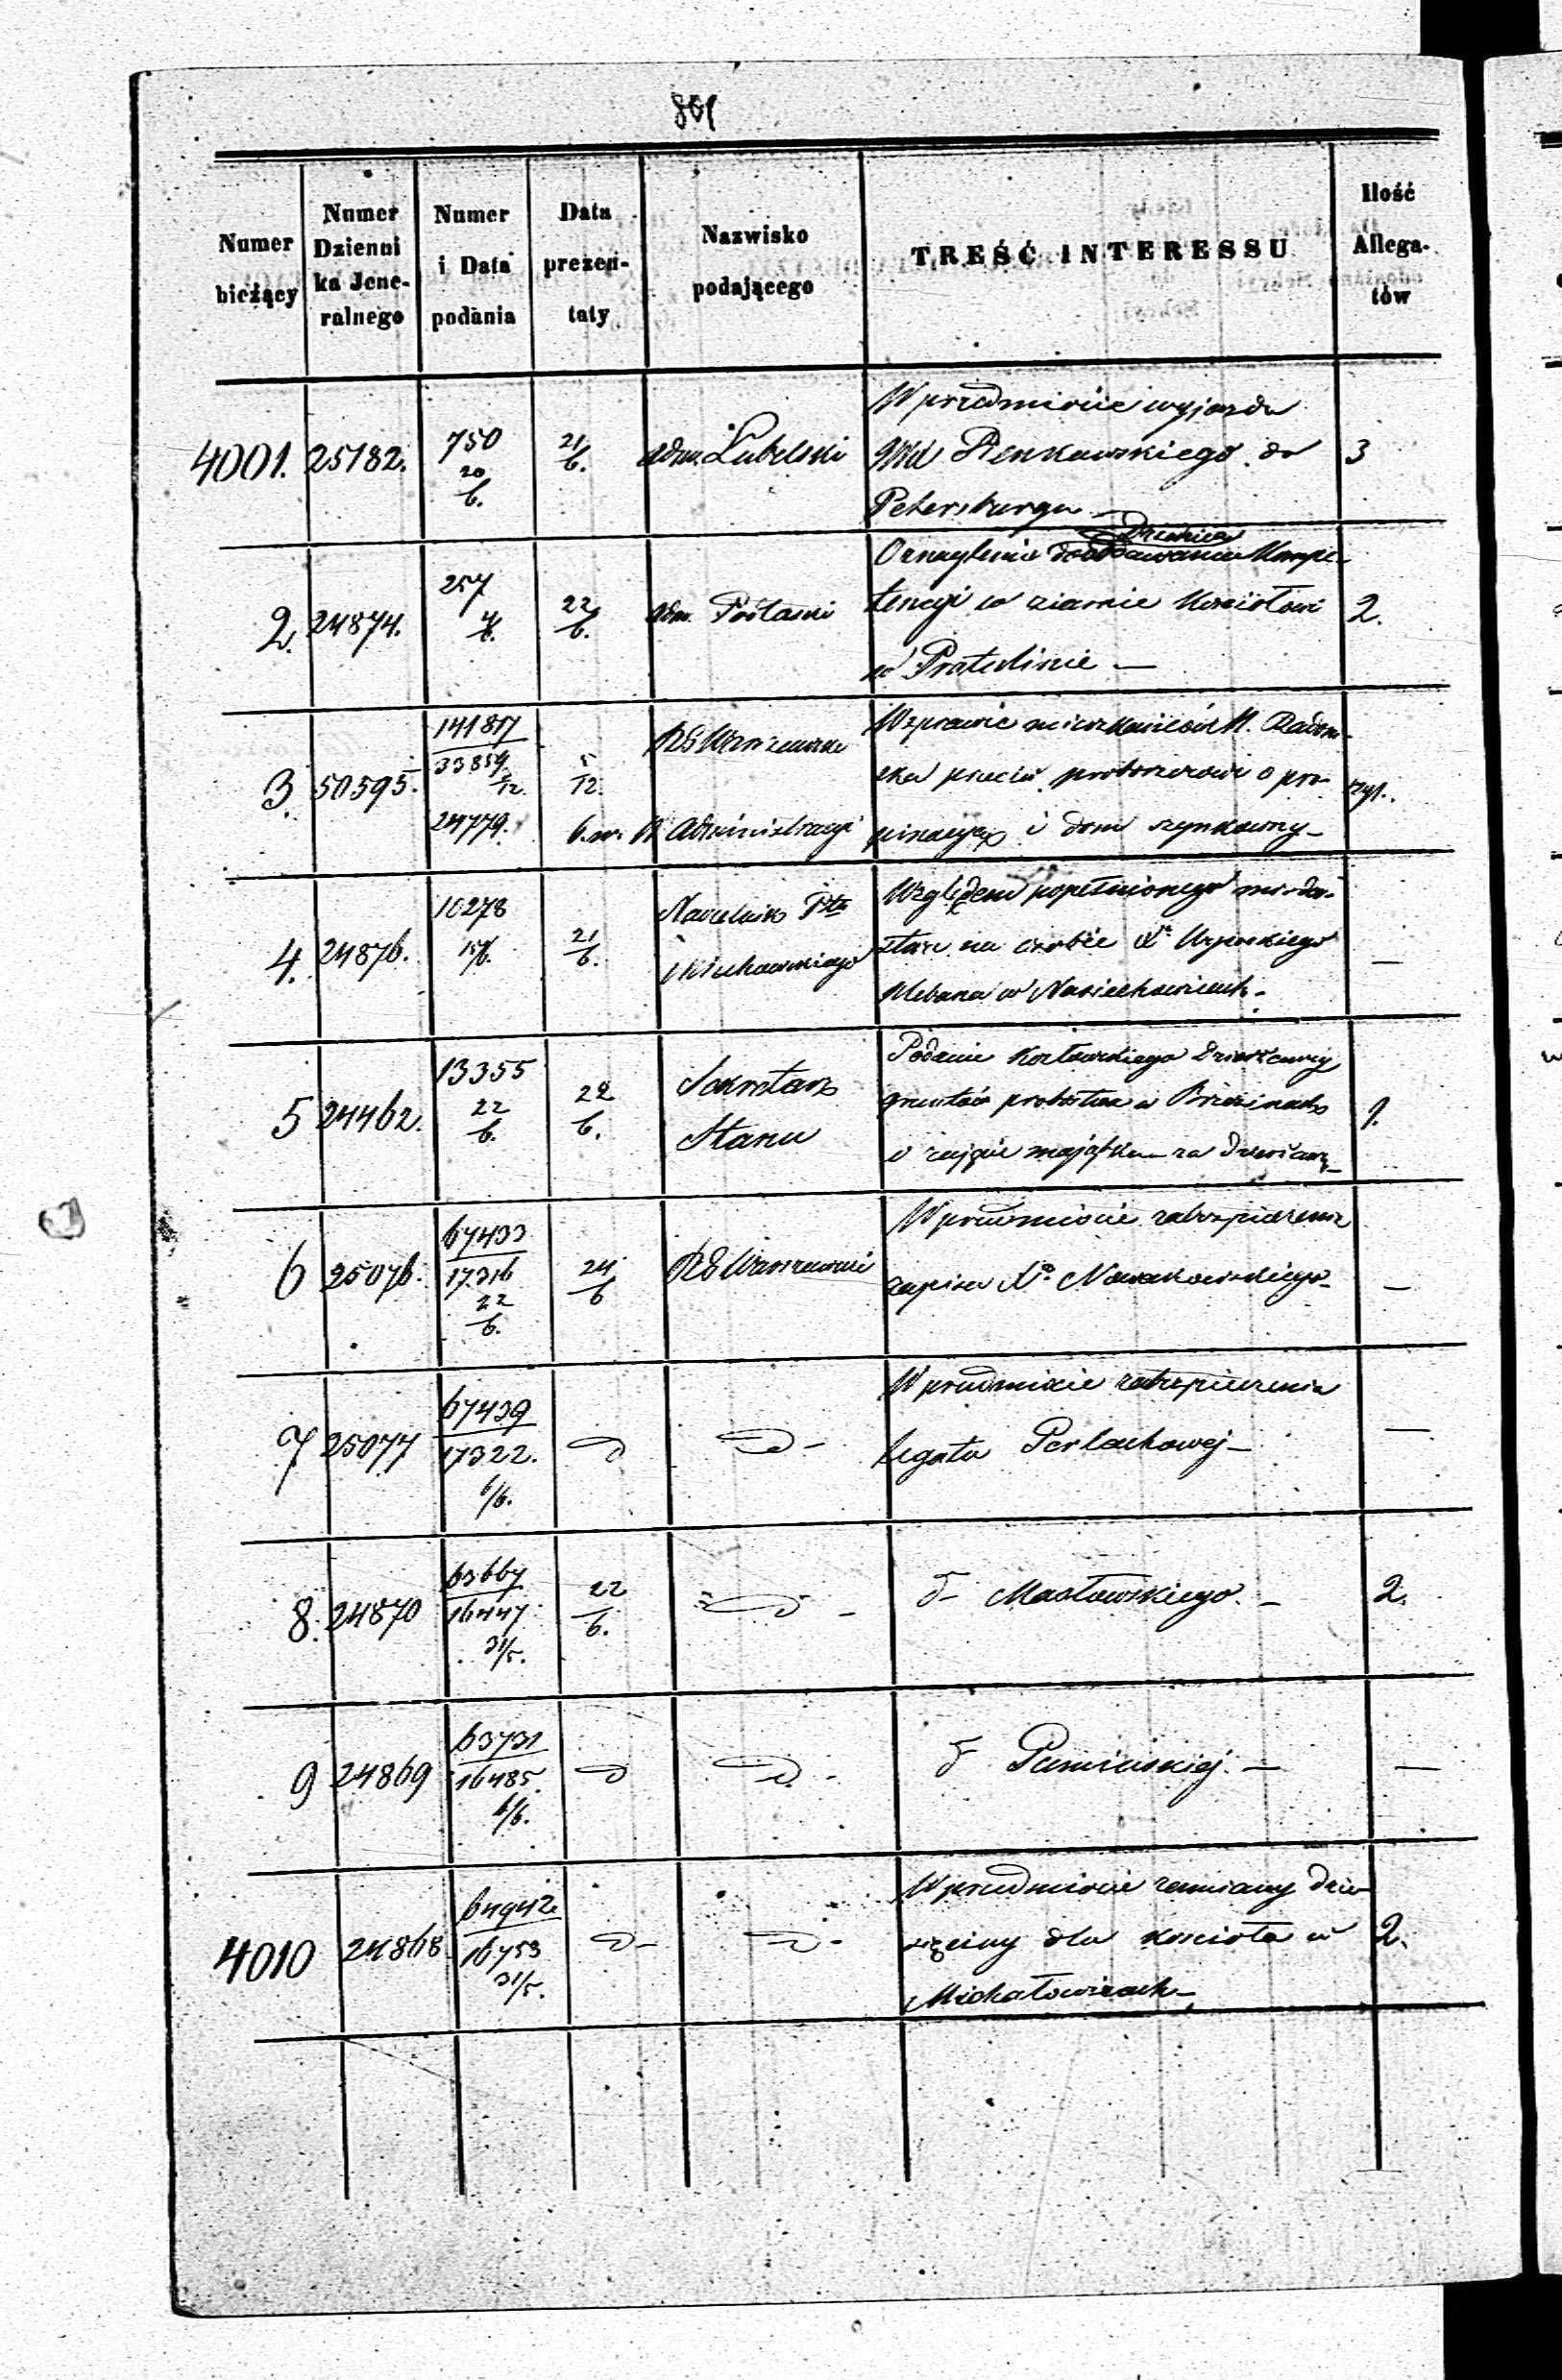 801
Numer bieżący
Numer Dzienni ka Jene- ralnego
Numer i Data podania
Data prezen- taty
Nazwisko podającego
TREŚĆ INTERESSU
Ilość Allega- tów
4001. 25182. 750 20/6. 21/6. Adm. Lubelski 3
W przedmiocie wyjazdu
Pienkowskiego do
Petersburga –
2. 24874. 257 4/6. 22/6. Adm. Podlaski 2.
w ziarnie Kościołowi
w Pratulinie —
3. 50595. 141817 33859 5/12. 5/12.
24779. 6. m. W. Administracyi
W sprawie mieszkańców M. Radom-
ska przeciw proboszczowi o pro-
pinacyą i dom szynkowny –
4. 24876. 10278 15/6. 21/6. Naczelnik Ptu
Miechowskiego —
Względem popełnionego
na osobie Xa
Plebana w Nasiechowicach –
5 24462. 13355 22/6. 22/6. Sekretarz
Stanu 1.
Podanie Kozłowskiego Dzierżawcy
gruntów probostwa w Brzezinach
o zajęcie majątku za Dzierżawę –
6 25076. 67433 17316 22/6. 24/6 RG Warszawski —
W przedmiocie zabezpieczenia
zapisu Xa Nowakowskiego –
7 25077 67439 17322. 6/6. —
W przedmiocie zabezpieczenia
legatu Perlachowej –
8. 24870 63667 16447 31/5. 22/6. d– Masłowskiego – 2.
9 24869 63731 16485. 6/6. d– —
4010 24868 64942 16753 31/5. 2.
W przedmiocie zamiany dzie-
sięciny dla kościoła w
Michałowicach –